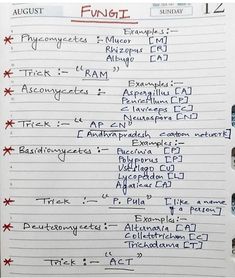 AUGUST FUNGI SUNDAY 12
Examples:-
* Phycomycetes:- Mucor [M]
Rhizopus [R]
Albugo [A]
* Trick:- "RAM"
Examples:-
* Ascomycetes:- Aspergillus [A]
Penicillum [P]
Claviceps [C]
Neurospora [N]
* Trick:- "AP CN"
[Andhrapradesh cartoon network]
Examples:-
* Basidiomycetes:- Puccinia [P]
Polyporus [P]
Ustilago [U]
Lycopodon [L]
Agaricus [A]
* Trick:- "P. Pula" [like a name of a person]
Examples:-
* Deuteromycetes:- Alternaria [A]
Colletotrichum [C]
Trichoderma [T]
* Trick:- "ACT"